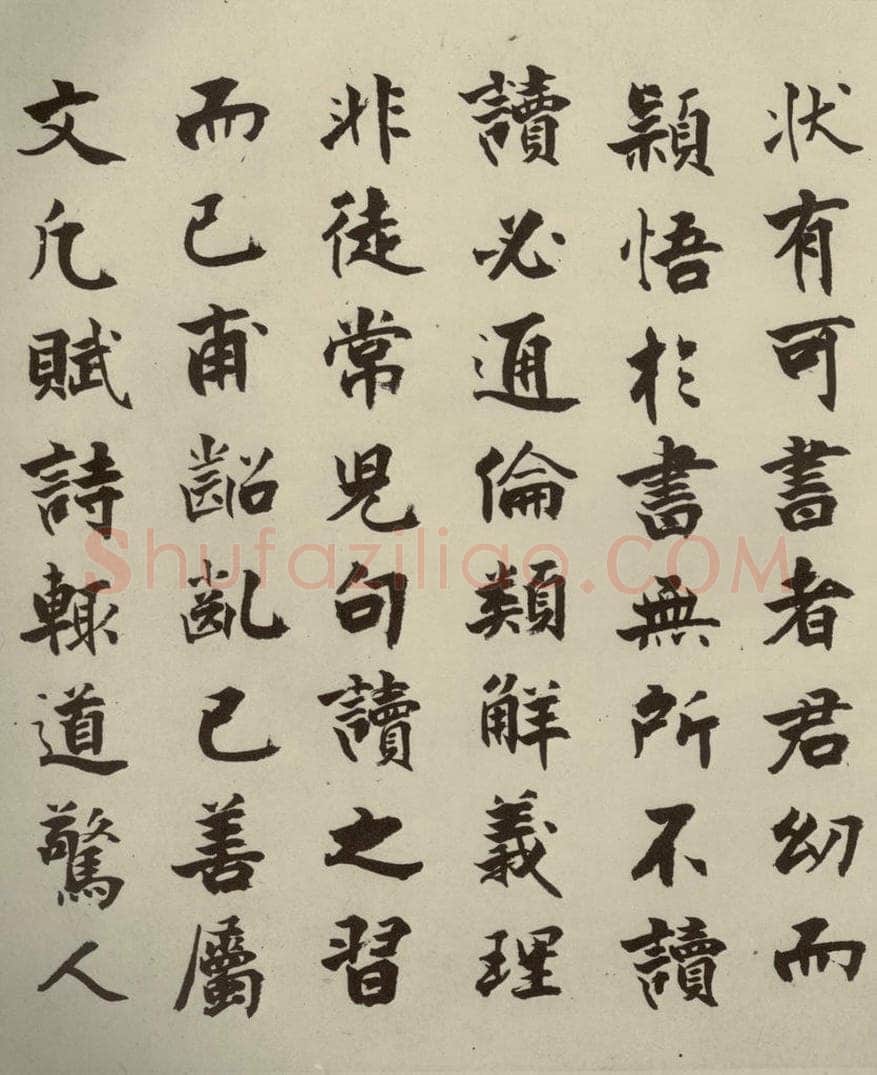 状有可書者君幼而
穎悟於書無所不讀
讀必通倫類解義理
非徒常児句讀之習
而已甫齠齔已善屬
文凡賦詩輙道驚人
Shufaziliao.COM